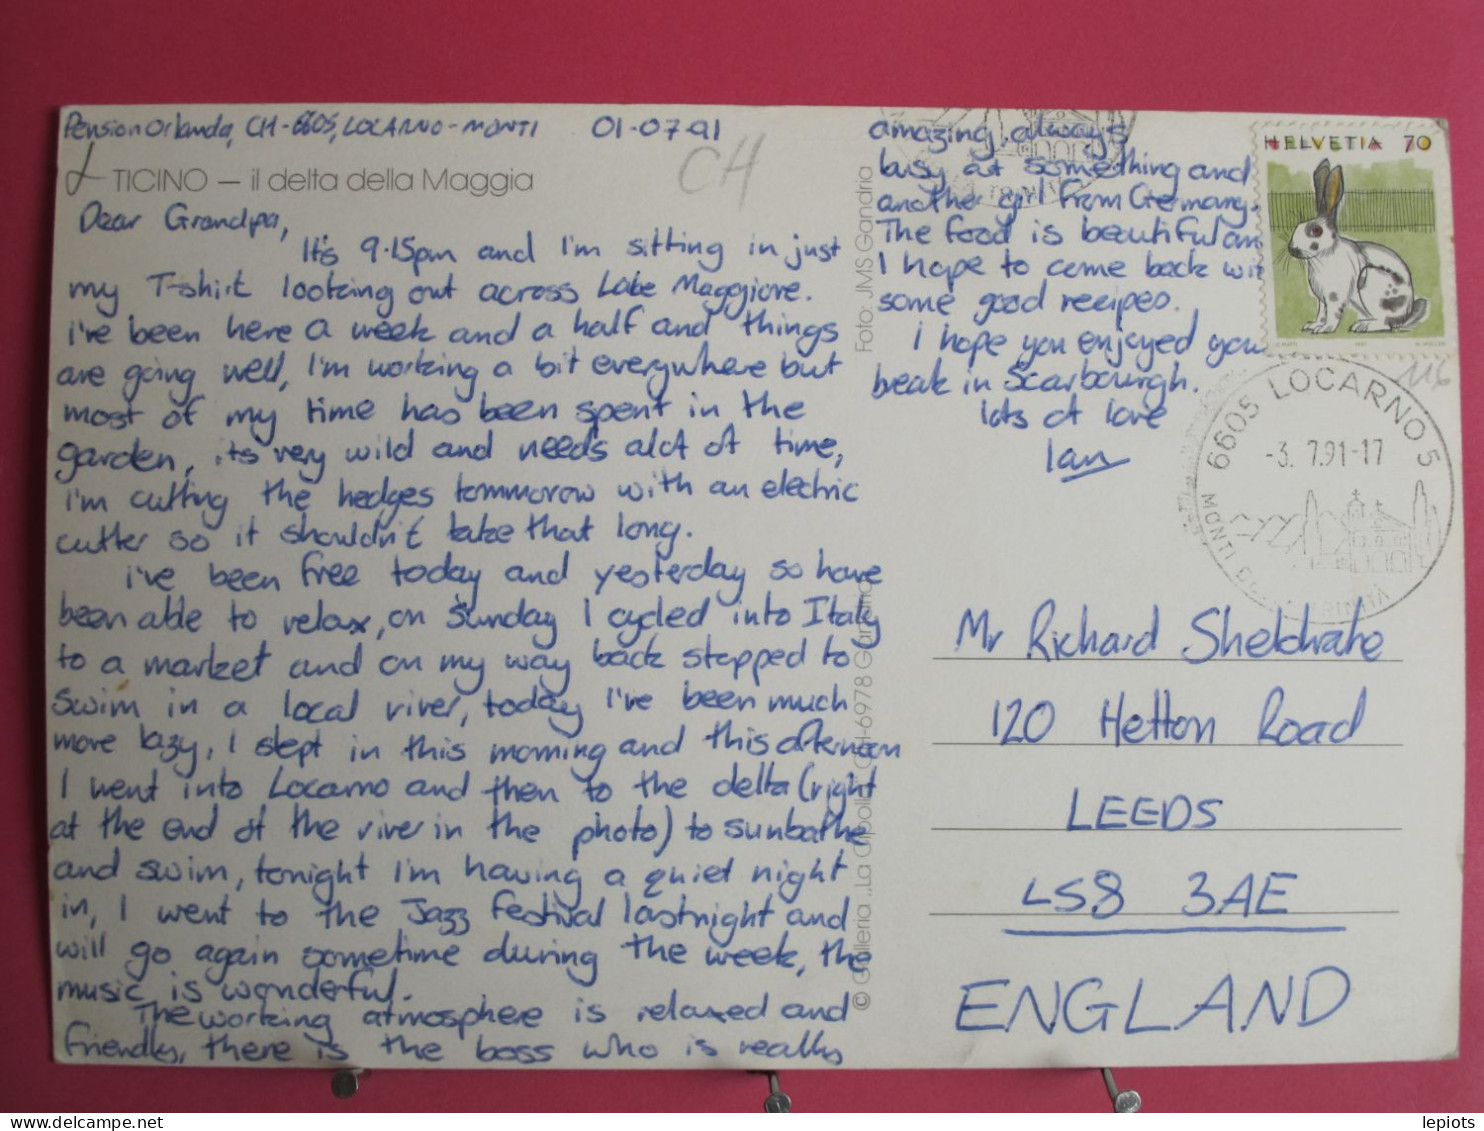 Pension Orlanda, CH-6605, LOCARNO-MONTI 01-07-91
CH
TICINO — il delta della Maggia
Dear Grandpa,
It's 9.15pm and I'm sitting in just
my T-shirt looking out across Lake Maggiore.
i've been here a week and a half and things
are going well, I'm working a bit everywhere but
most of my time has been spent in the
garden, its very wild and needs alot of time,
i'm cutting the hedges tommorow with an electric
cutter so it shouldn't take that long.
i've been free today and yesterday so have
been able to relax, on Sunday I cycled into Italy
to a market and on my way back stopped to
swim in a local river, today I've been much
more lazy, I slept in this morning and this afternoon
I went into Locarno and then to the delta (right
at the end of the river in the photo) to sunbathe
and swim, tonight I'm having a quiet night
in, I went to the Jazz Festival lastnight and
will go again sometime during the week, the
music is wonderful.
The working atmosphere is relaxed and
friendly, there is the boss who is really
amazing, always
busy at something and
another girl from Germany.
The food is beautiful an
I hope to come back wit
some good recipes.
I hope you enjoyed you
break in Scarbourgh.
lots of love
Ian
Foto: JMS Gandria
© Galleria „La Cipolla" CH-6978 Gandria
HELVETIA 70
116
6605 LOCARNO 5
-3. 7.91-17
MONTI D TRINITÀ
Mr Richard Sheldrake
120 Hetton Road
LEEDS
LS8 3AE
ENGLAND
lepiots